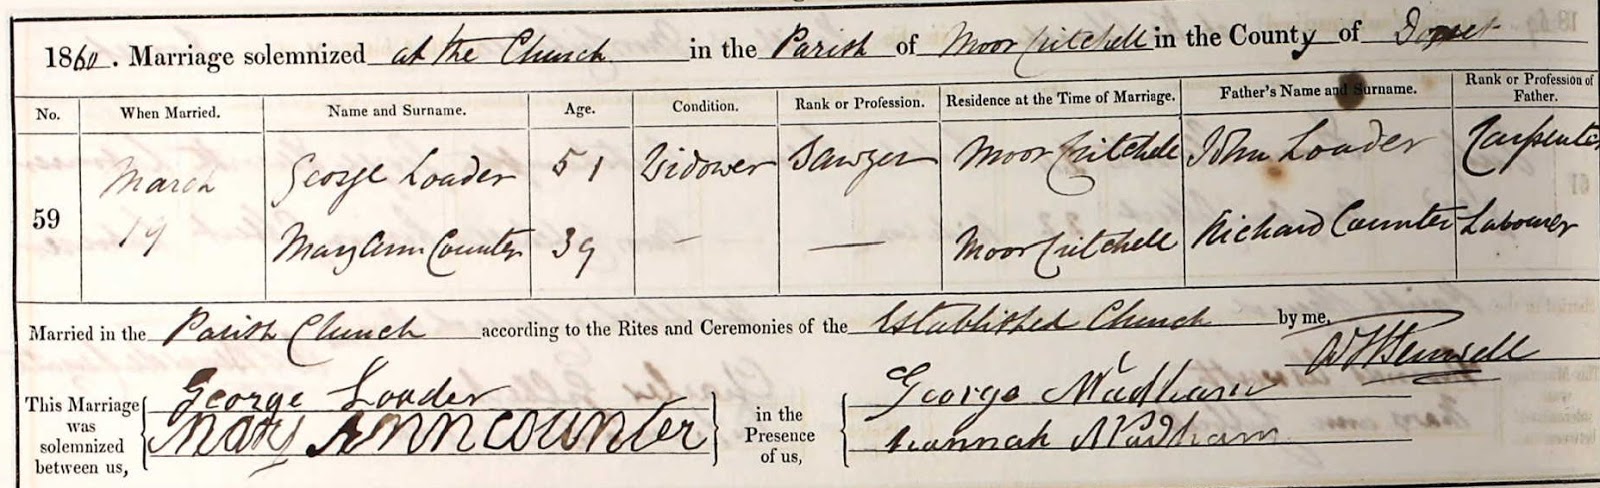 1860. Marriage solemnized at the Church in the Parish of Moor Critchell in the County of Dorset
No. When Married. Name and Surname. Age. Condition. Rank or Profession. Residence at the Time of Marriage. Father's Name and Surname. Rank or Profession of Father.
59 March 19 George Loader 51 Widower Sawyer Moor Critchell John Loader Carpenter
Mary Ann Counter 39 — — Moor Critchell Richard Counter Labourer
Married in the Parish Church according to the Rites and Ceremonies of the Established Church by me,
This Marriage was solemnized between us, George Loader
Mary Ann Counter
in the Presence of us, George Wadham
Hannah Wadham